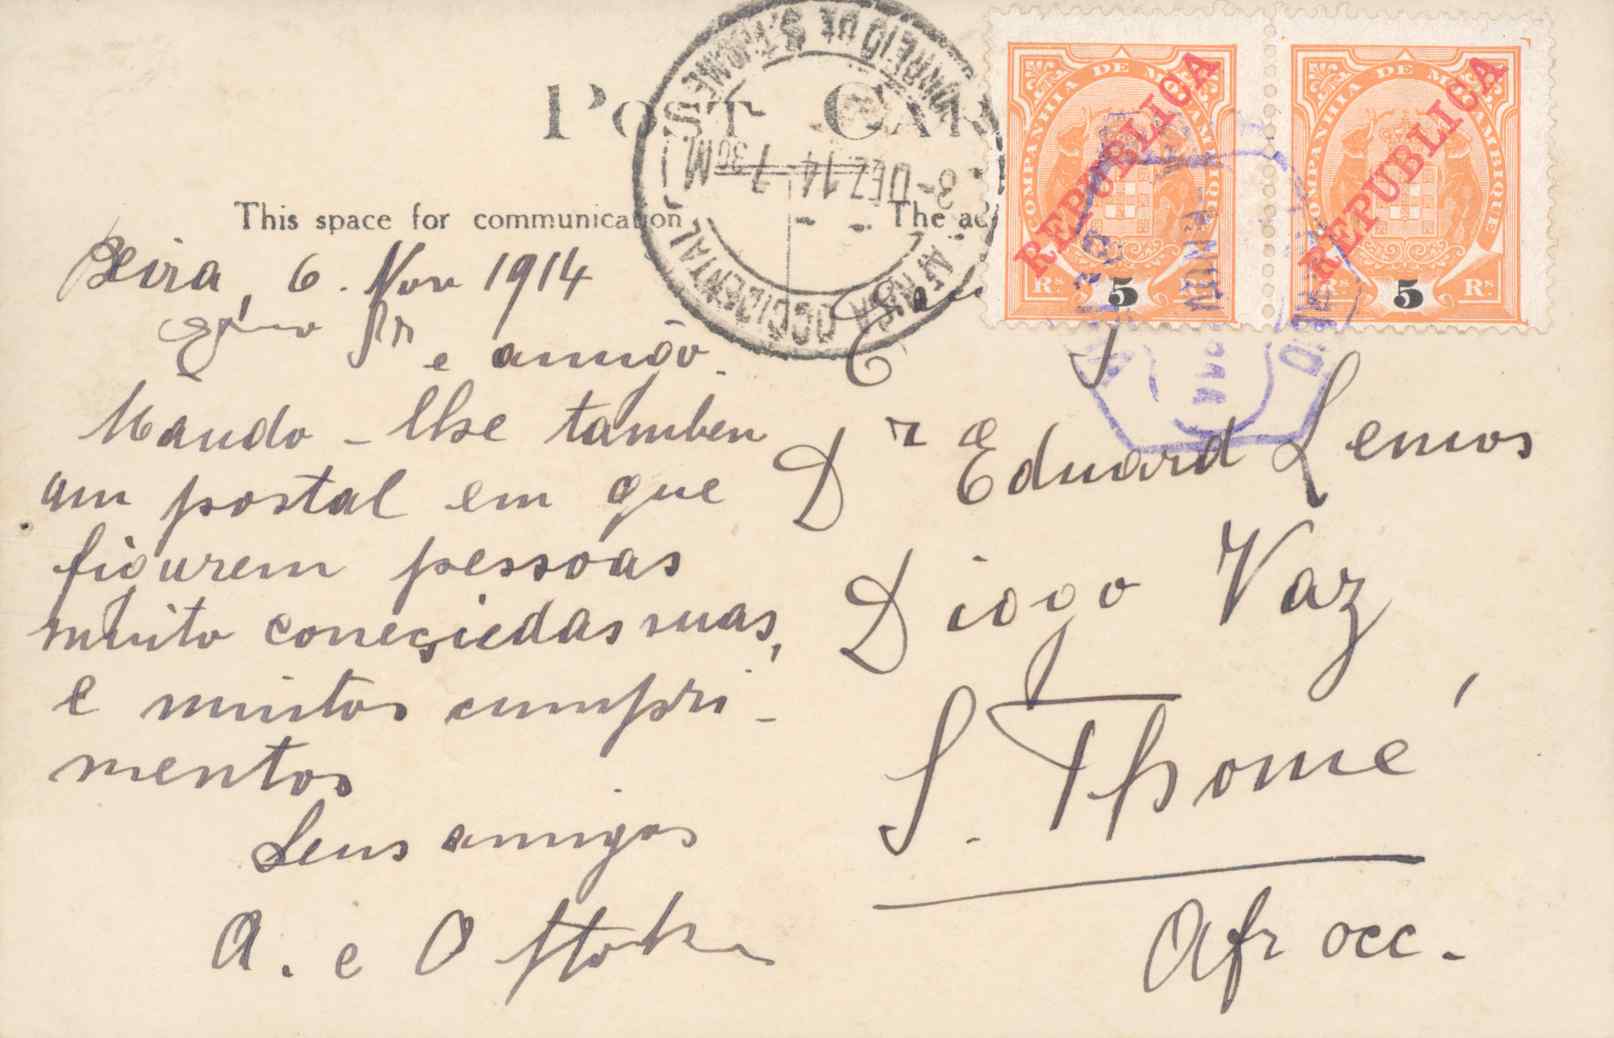 POST CAR
This space for communication
The ad
CORREIO DE S. THOMÉ
3 DEZ. 14 7 30 M.
AFRICA OCCIDENTAL
COMPANHIA DE MOÇAMBIQUE
REPUBLICA
5 Rs.
COMPANHIA DE MOÇAMBIQUE
REPUBLICA
5 Rs.
Beira, 6. Nov 1914
Exmo Sr e amigo.
Mando-lhe tamben
um postal em que
figurem pessoas
muito coneçiedas suas,
e muitos cumpri-
mentos
Seus amigos
A. e O
Dr Eduard Lemos
Diogo Vaz
S. Thomé
Afr occ.